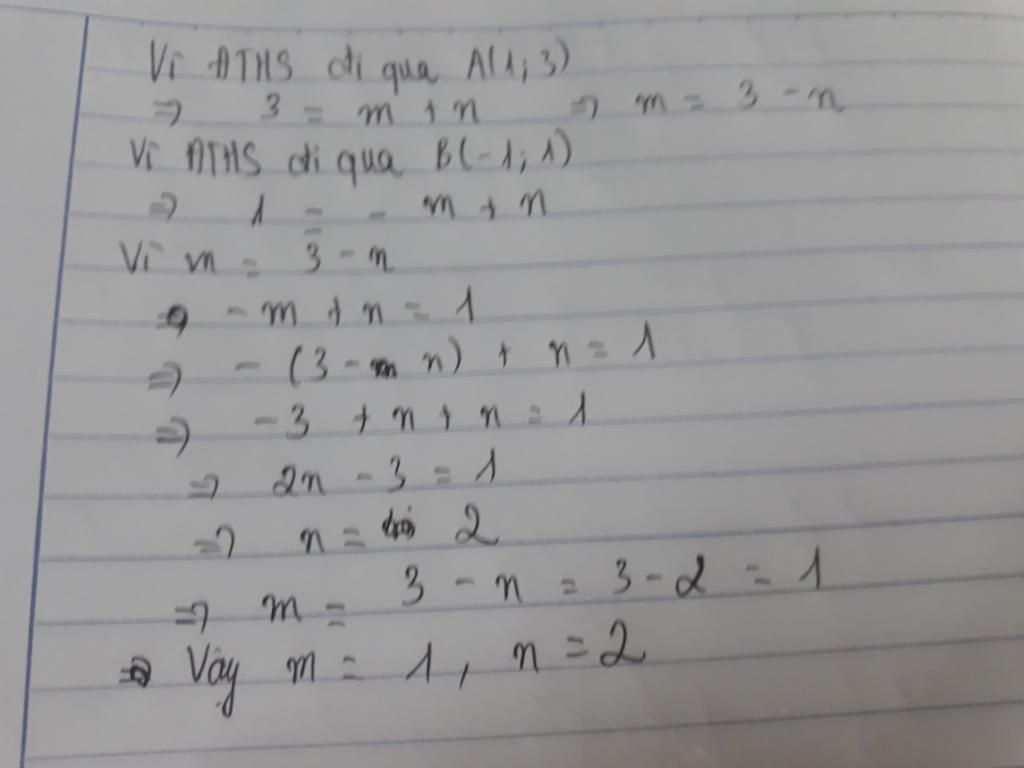 Vì ĐTHS đi qua A(1; 3)
=> 3 = m + n => m = 3 - n
Vì ĐTHS đi qua B(-1; 1)
=> 1 = - m + n
Vì m = 3 - n
=> - m + n = 1
=> - (3 - n) + n = 1
=> -3 + n + n = 1
=> 2n - 3 = 1
=> n = 2
=> m = 3 - n = 3 - 2 = 1
=> Vậy m = 1, n = 2